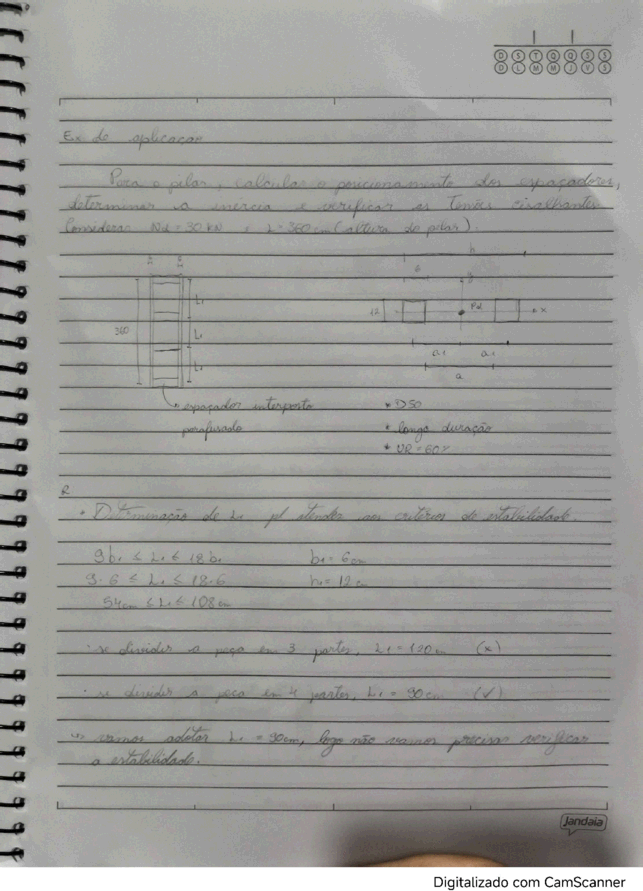 D S T Q Q S S
D L M M J V S
Ex de aplicação
Para o pilar, calcular o posicionamento dos espaçadores,
determinar a inércia e verificar as Tensões cisalhantes.
Considerar Nd = 30 kN e L = 360 cm (altura do pilar).
h
6 6
6 y
360 L1 12 Pd x
L1
a1 a1
L1
a
espaçador interposto
parafusado
* D50
* longa duração
* UR = 60%
R
• Determinação de L1 p/ atender aos critérios de estabilidade.
9b1 ≤ L1 ≤ 18b1 b1 = 6cm
9.6 ≤ L1 ≤ 18.6 h1 = 12cm
54cm ≤ L1 ≤ 108cm
· se dividir a peça em 3 partes, L1 = 120cm (x)
· se dividir a peça em 4 partes, L1 = 90cm (✓)
vamos adotar L1 = 90cm, logo não vamos precisar verificar
a estabilidade.
Jandaia
Digitalizado com CamScanner